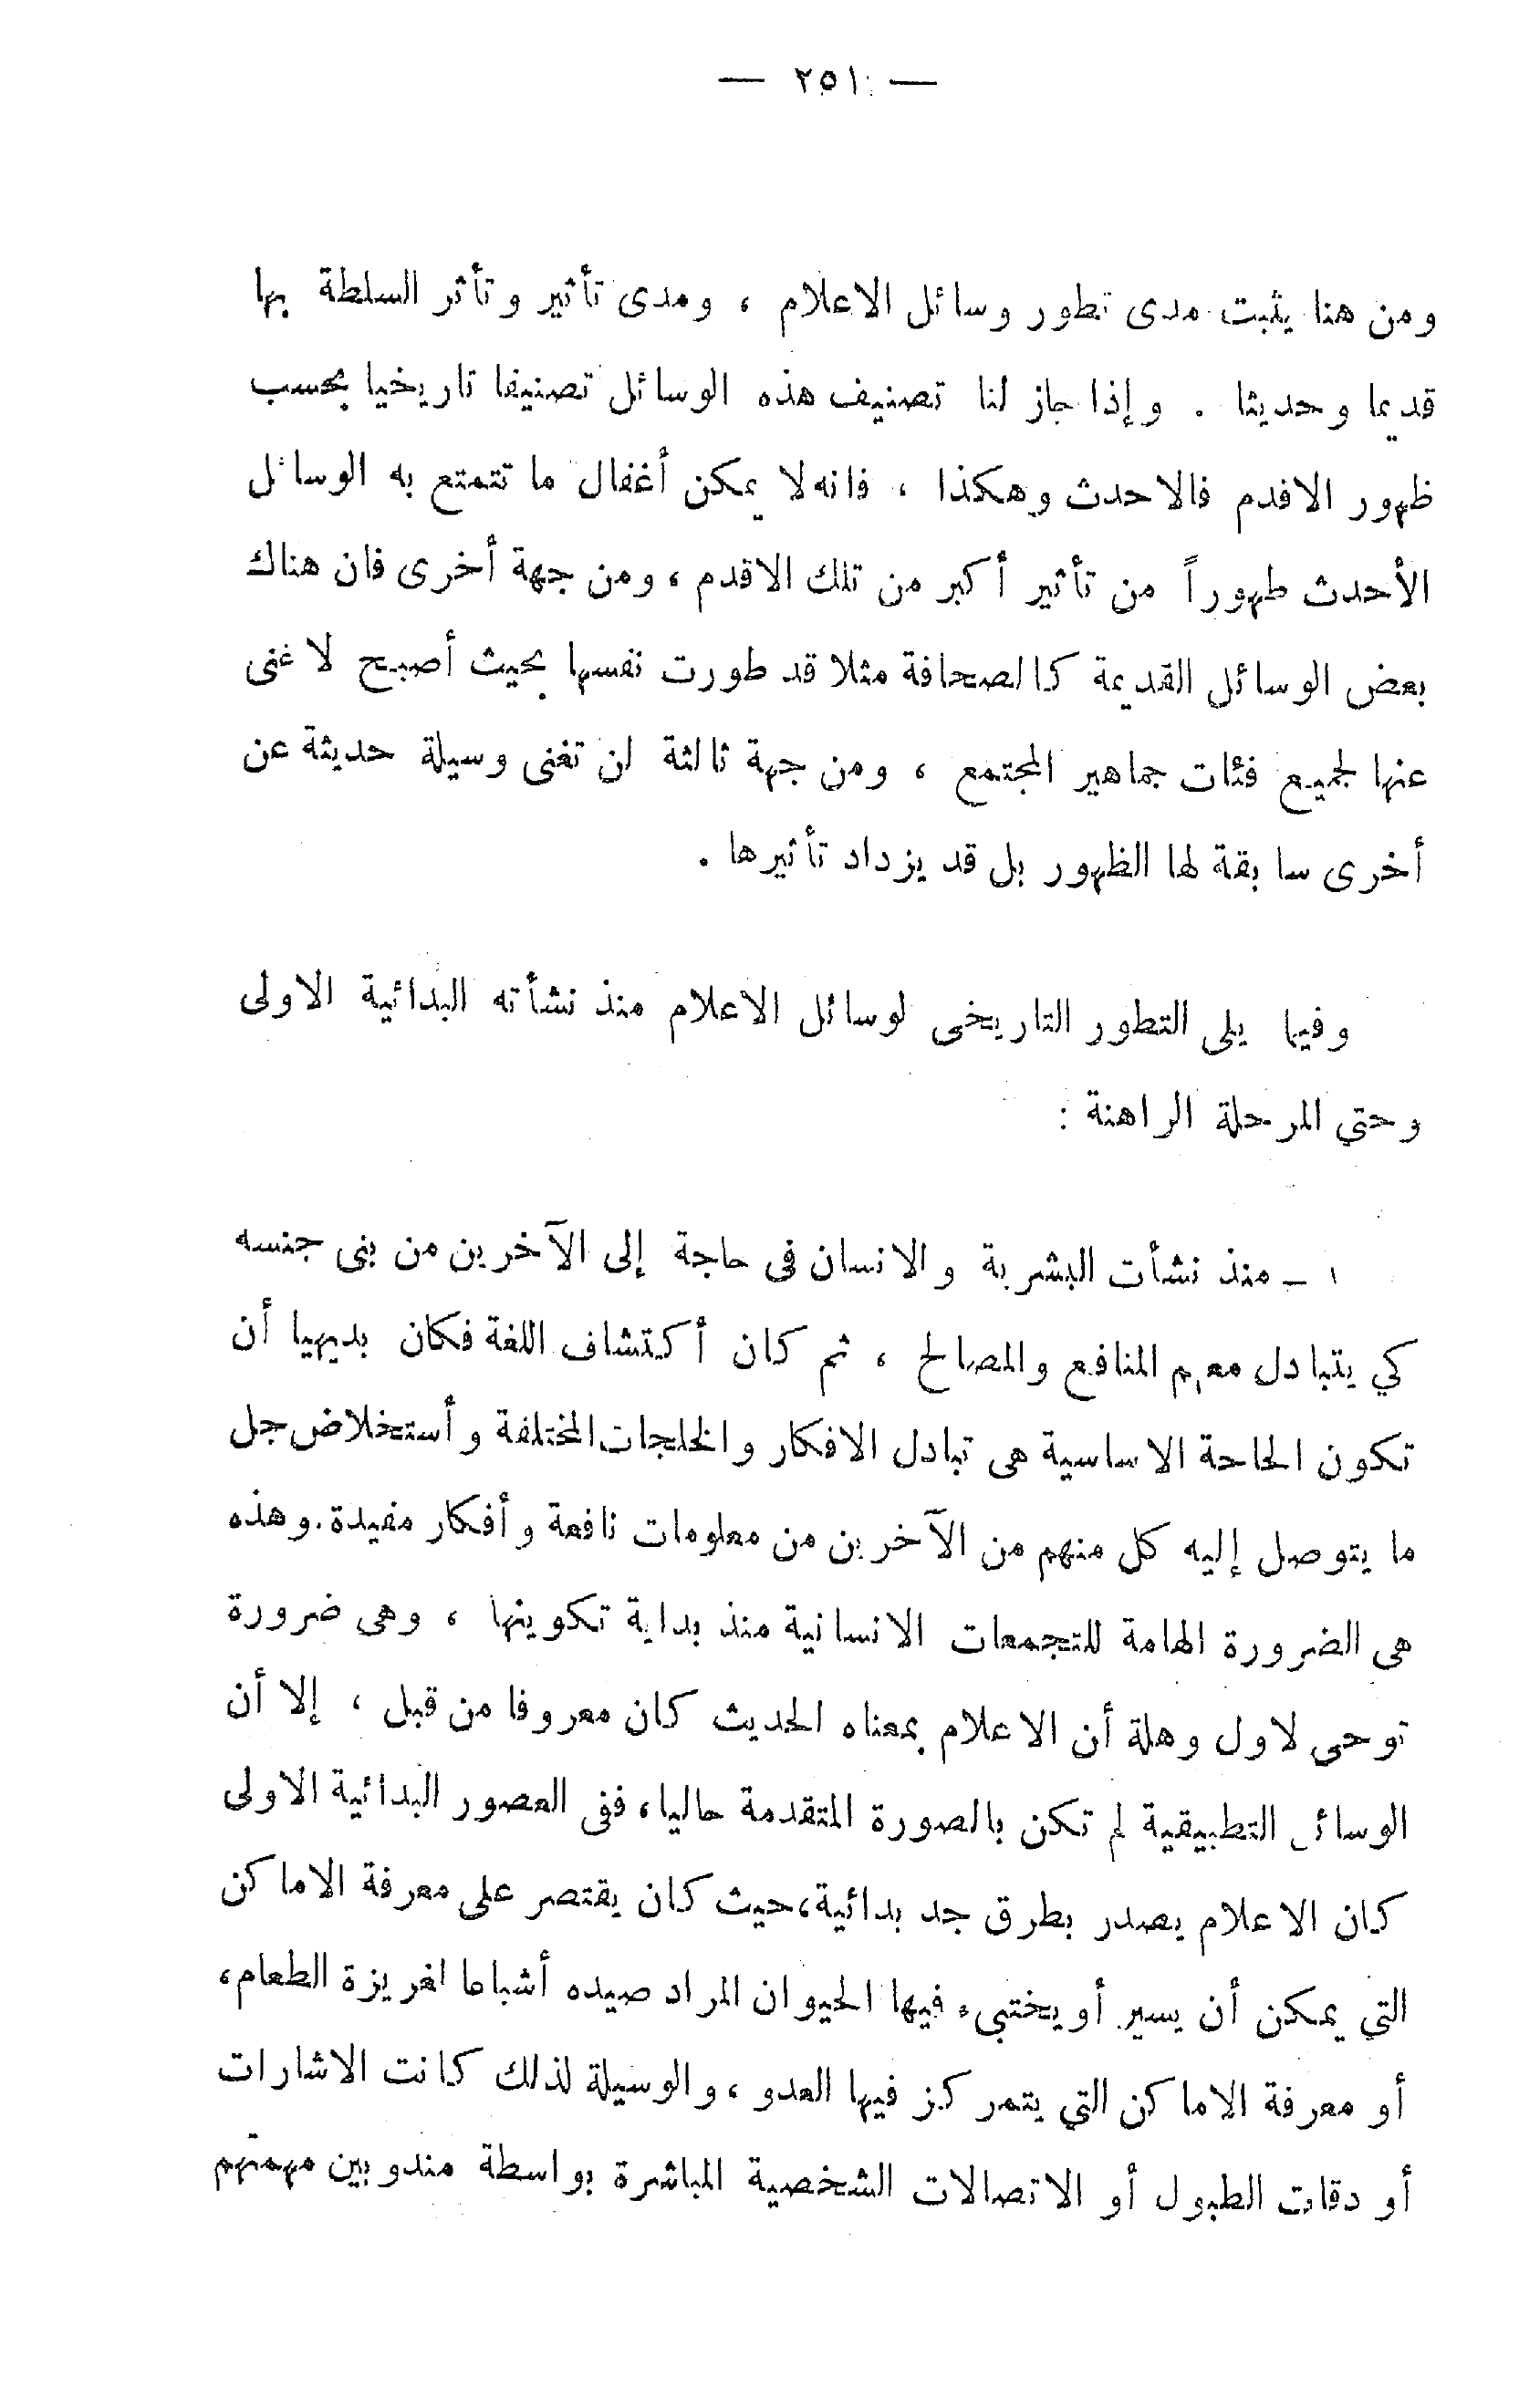 — ٢٥١ —
ومن هنا يثبت مدى تطور وسائل الاعلام ، ومدى تأثير وتأثر السلطة بها
قديما وحديثا . وإذا جاز لنا تصنيف هذه الوسائل تصنيفا تاريخيا بحسب
ظهور الافدم فالاحدث وهكذا ، فانه لا يمكن أغفال ما تتمتع به الوسائل
الأحدث طهوراً من تأثير أكبر من تلك الاقدم ، ومن جهة أخرى فان هناك
بعض الوسائل القديمة كالصحافة مثلا قد طورت نفسها بحيث أصبح لا غنى
عنها لجميع فئات جماهير المجتمع ، ومن جهة ثالثة لن تغنى وسيلة حديثة عن
أخرى سابقة لها الظهور بل قد يزداد تأثيرها .
وفيما يلى التطور التاريخى لوسائل الاعلام منذ نشأته البدائية الاولى
وحتي المرحلة الراهنة :
١ – منذ نشأت البشرية والانسان فى حاجة إلى الآخرين من بنى جنسه
كي يتبادل معهم المنافع والمصالح ، ثم كان أكتشاف اللغة فكان بديهيا أن
تكون الحاحة الاساسية هى تبادل الافكار والخلجات المختلفة وأستخلاض جل
ما يتوصل إليه كل منهم من الآخرين من معلومات نافعة وأفكار مفيدة . وهذه
هى الضرورة الهامة للتجمعات الانسانية منذ بداية تكوينها ، وهى ضرورة
توحى لاول وهلة أن الاعلام بمعناه الحديث كان معروفا من قبل ، إلا أن
الوسائل التطبيقية لم تكن بالصورة المتقدمة حاليا ، ففى العصور البدائية الاولى
كان الاعلام يصدر بطرق جد بدائية ، حيث كان يقتصر على معرفة الاماكن
التي يمكن أن يسير أو يختبىء فيها الحيوان المراد صيده أشباعا لغريزة الطعام ،
أو معرفة الاماكن التي يتمركز فيها العدو ، والوسيلة لذلك كانت الاشارات
أو دقات الطبول أو الاتصالات الشخصية المباشرة بواسطة مندوبين مهمتهم